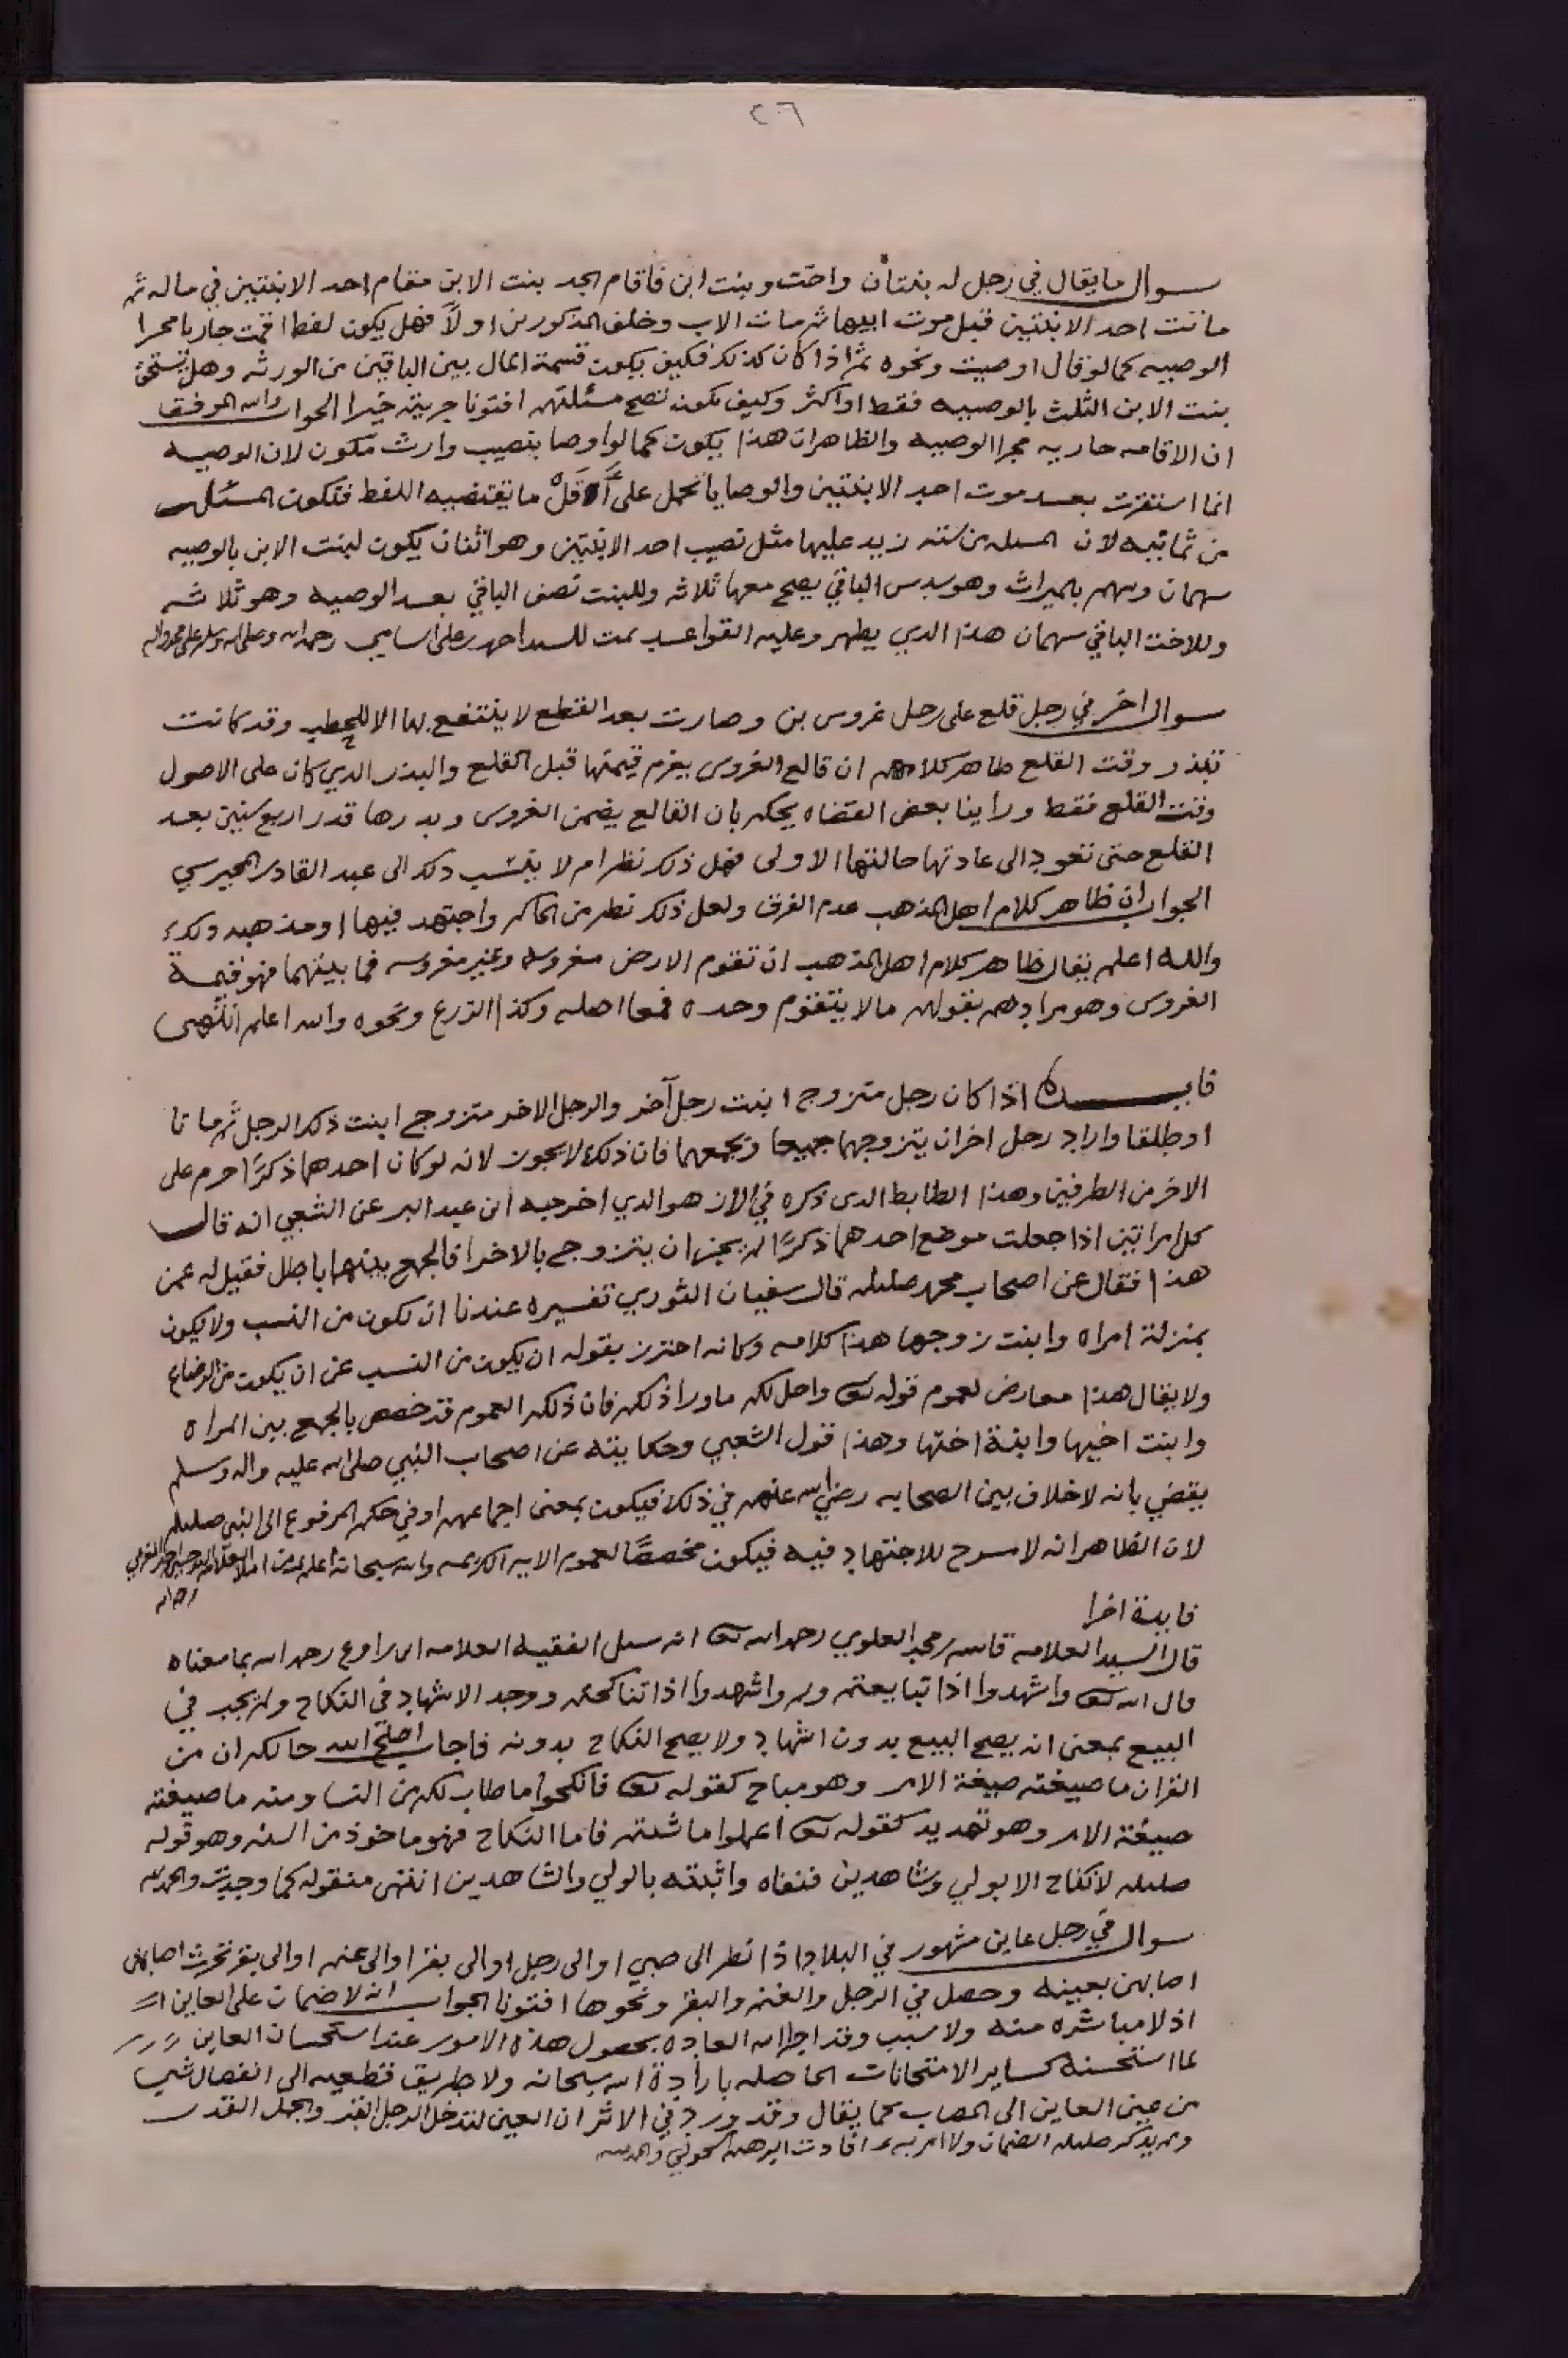 ٢٦
سوال ما يقال في رجل له بنتان واخت وبنت ابن فاقام الجد بنت الابن مقام احد الابنتين في ماله ثم
ماتت احد الابنتين قبل موت ابيها ثم مات الاب وخلف المذكورين اولاً فهل يكون لفظ اقمت جاريا مجرا
الوصيه كما لو قال اوصيت ونحوه ثم اذا كان كذلك فكيف يكون قسمة المال بين الباقين من الورثه وهل تستحق
بنت الابن الثلث بالوصيه فقط او اكثر وكيف تكون تصح مسئلتهم افتونا جزيتم خيرا الجواب والله الموفق
ان الاقامه جاريه مجرا الوصيه والظاهر ان هذا يكون كما لو اوصا بنصيب وارث مكون لان الوصيه
انما استقرت بعد موت احد الابنتين والوصايا تحمل على أقل ما يقتضيه اللفظ فتكون المسئله
من ثمانيه لان المسله من سته زيد عليها مثل نصيب احد الابنتين وهو اثنان يكون لبنت الابن بالوصيه
سهمان وسهم بالميراث وهو سدس الباقي يصح معها ثلاثه وللبنت نصف الباقي بعد الوصيه وهو ثلاثه
وللاخت الباقي سهمان هذا الذي يظهر وعليه القواعد تمت للسيد احمد بن علي الشامي رحمه الله وصلى الله وسلم على محمد واله
سوال اخر في رجل قلع على رجل غروس بن وصارت بعد القطع لا ينتفع بها الا للحطب وقد كانت
تبذر وقت القلع ظاهر كلامهم ان قالع الغروس يغرم قيمتها قبل القلع والبذر الذي كان على الاصول
وقت القلع فقط وراينا بعض القضاه يحكم بان القالع يضمن الغروس وبذرها قدر اربع سنين بعد
القلع حتى تعود الى عادتها حالتها الاولى فهل ذلك نظر ام لا ينسب ذلك الى عبد القادر المحيرسي
الجواب ان ظاهر كلام اهل المذهب عدم الفرق ولعل ذلك نظر من الحاكم واجتهد فيها او مذهبه ذلك
والله اعلم يقال ظاهر كلام اهل المذهب ان تقوم الارض مغروسه وغير مغروسه فما بينهما فهو قيمة
الغروس وهو مرادهم بقولهم ما لا يتقوم وحده فمع اصله وكذا الزرع ونحوه والله اعلم انتهى
فايده اذا كان رجل متزوج ابنت رجل آخر والرجل الاخر متزوج ابنت ذلك الرجل ثم ماتا
او طلقا واراد رجل اخر ان يتزوجهما جميعا ويجمعهما فان ذلك لا يجوز لانه لو كان احدهما ذكرًا حرم على
الاخر من الطرفين وهذا الظابط الذي ذكره في الاز هو الذي اخرجه ابن عبد البر عن الشعبي انه قال
كل امراتين اذا جعلت موضع احدهما ذكرًا لم يجز ان يتزوج بالاخرا فالجمع بينهما باطل فقيل له عمن
هذا فقال عن اصحاب محمد صلىلم قال سفيان الثوري تفسيره عندنا ان تكون من النسب ولا يكون
بمنزلة امراه وابنت زوجها هذا كلامه وكانه احترز بقوله ان يكون من النسب عن ان يكون من الرضاع
ولا يقال هذا معارض لعموم قوله تعا واحل لكم ما ورا ذلكم فان ذلك العموم قد خصص بالجمع بين المراه
وابنت اخيها وابنة اختها وهذا قول الشعبي وحكايته عن اصحاب النبي صلى الله عليه واله وسلم
يقضي بانه لا خلاف بين الصحابه رضي الله عنهم في ذلك فيكون بمعنى اجماعهم او في حكم المرفوع الى النبي صلىلم
لان الظاهر انه لا مسرح للاجتهاد فيه فيكون مخصصًا لعموم الايه الكريمه والله سبحانه اعلم
فايدة اخرا
قال السيد العلامه قاسم بن محمد العلوي رحمه الله تعا انه سئل الفقيه العلامه رحمه الله بما معناه
قال الله تعا واشهدوا اذا تبايعتم ولم واشهدوا اذا تناكحتم ووجد الاشهاد في النكاح ولم يجب في
البيع بمعنى انه يصح البيع بدون اشهاد ولا يصح النكاح بدونه فاجاب اصلح الله حالكم ان من
القران ما صيغته صيغة الامر وهو مباح كقوله تعا فانكحوا ما طاب لكم من النسا ومنه ما صيغته
صيغة الامر وهو تهديد كقوله تعا اعملوا ما شئتم فاما النكاح فهو ماخوذ من السنه وهو قوله
صلىلم لا نكاح الا بولي وشاهدين فنفاه واثبته بالولي والشاهدين انتهى منقوله كما وجدت والحمد لله
سوال في رجل عاين مشهور في البلاد اذا نظر الى صبي او الى رجل او الى بقر او الى غنم او الى بقر تحرث اصابهن
اصابهن بعينه وحصل في الرجل والغنم والبقر ونحوها افتونا الجواب انه لا ضمان على العاين
اذ لا مباشره منه ولا سبب وقد اجرا الله العاده بحصول هذه الامور عند استحسان العاين
لما استحسنه كساير الامتحانات الحاصله بارادة الله سبحانه ولا طريق قطعيه الى انفصال شي
من عين العاين الى المصاب كما يقال وقد ورد في الاثر ان العين لتدخل الرجل القبر والجمل القدر
ولم يذكر صلىلم الضمان ولا امر به افادت والحمد لله